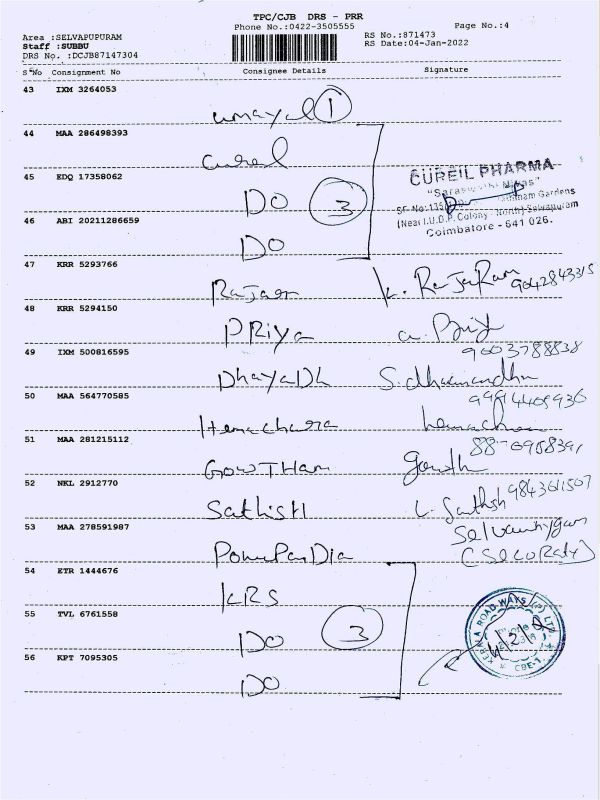 TPC/CJB DRS - PRR
Phone No.:0422-3505555
Page No.:4
Area :SELVAPUPURAM
Staff :SUBBU
DRS No. :DCJB87147304
RS No.:871473
RS Date:04-Jan-2022
S No Consignment No Consignee Details Signature
43 IXM 3264053
umayal 1
44 MAA 286498393
Cureil
45 EDQ 17358062
DO 3
CUREIL PHARMA
46 ABI 20211286659
DO
(Near I.U.D.P. Colony North) Selvapuram
Coimbatore - 641 026.
47 KRR 5293766
Rajaram K. RajaRam 9042843315
48 KRR 5294150
PRiya a. Priy
9603788838
49 IXM 500816595
DhayaDh
50 MAA 564770585
Hemachara
51 MAA 281215112
GowTHam gowth
52 NKL 2912770
SathisH L. Sathish 9843611507
53 MAA 278591987
PonuPanDia
54 ETR 1444676
KRS
55 TVL 6761558
DO 3
KERALA ROAD WAYS (P) LTD
CBE-1
56 KPT 7095305
DO